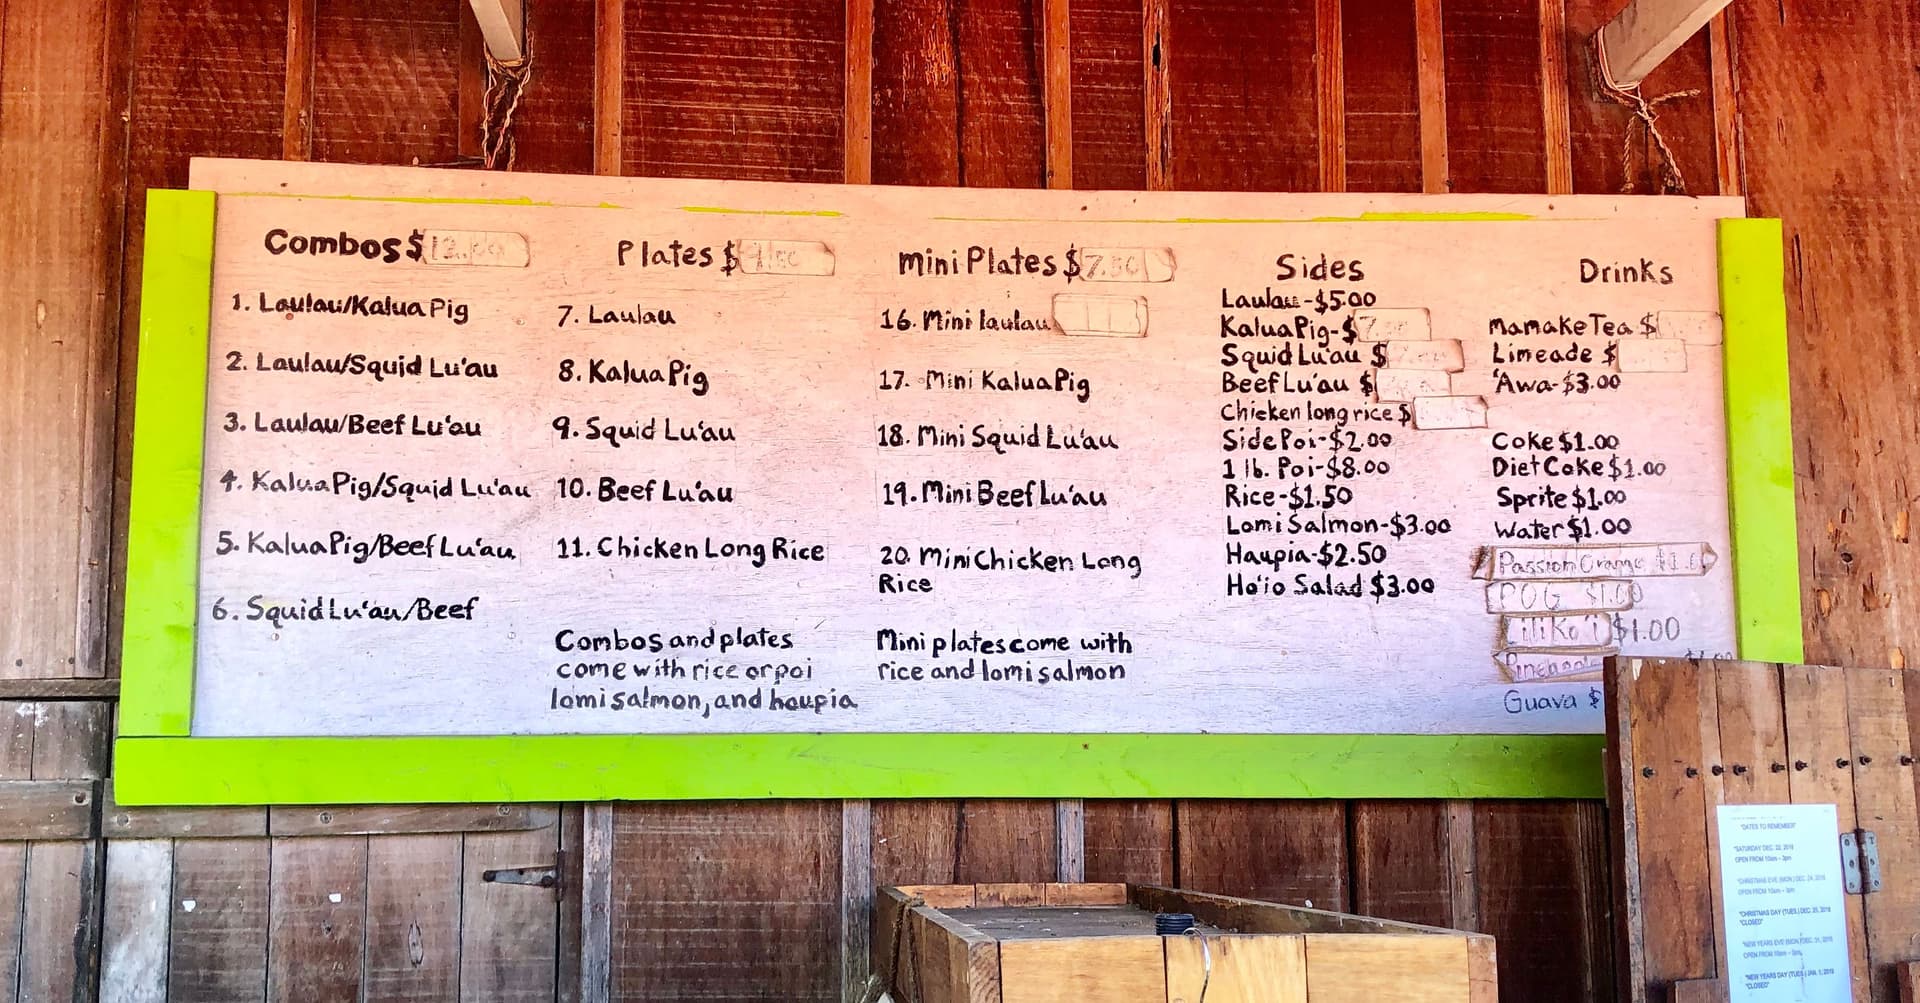 Combos $
1. Laulau/Kalua Pig
2. Laulau/Squid Lu'au
3. Laulau/Beef Lu'au
4. Kalua Pig/Squid Lu'au
5. Kalua Pig/Beef Lu'au
6. Squid Lu'au/Beef
Plates $
7. Laulau
8. Kalua Pig
9. Squid Lu'au
10. Beef Lu'au
11. Chicken Long Rice
Combos and plates
come with rice or poi
lomi salmon, and haupia
mini Plates $7.50
16. Mini laulau
17. Mini Kalua Pig
18. Mini Squid Lu'au
19. Mini Beef Lu'au
20. Mini Chicken Long
Rice
Mini plates come with
rice and lomi salmon
Sides
Laulau-$5.00
Kalua Pig-$
Squid Lu'au $
Beef Lu'au $
Chicken long rice $
Side Poi-$2.00
1 lb. Poi-$8.00
Rice-$1.50
Lomi Salmon-$3.00
Haupia-$2.50
Ho'io Salad $3.00
Drinks
mamake Tea $
Limeade $
'Awa-$3.00
Coke $1.00
Diet Coke $1.00
Sprite $1.00
Water $1.00
Passion Orange
POG $1.00
Liliko'i $1.00
Pineapple
Guava $
"DATES TO REMEMBER"
"SATURDAY DEC. 22, 2018
OPEN FROM 10am - 3pm
"CHRISTMAS EVE (MON.) DEC. 24, 2018
OPEN FROM 10am - 3pm
"CHRISTMAS DAY (TUES.) DEC. 25, 2018
"CLOSED"
"NEW YEARS EVE (MON.) DEC. 31, 2018
OPEN FROM 10am
"NEW YEARS DAY (TUES.) JAN. 1, 2019
"CLOSED"